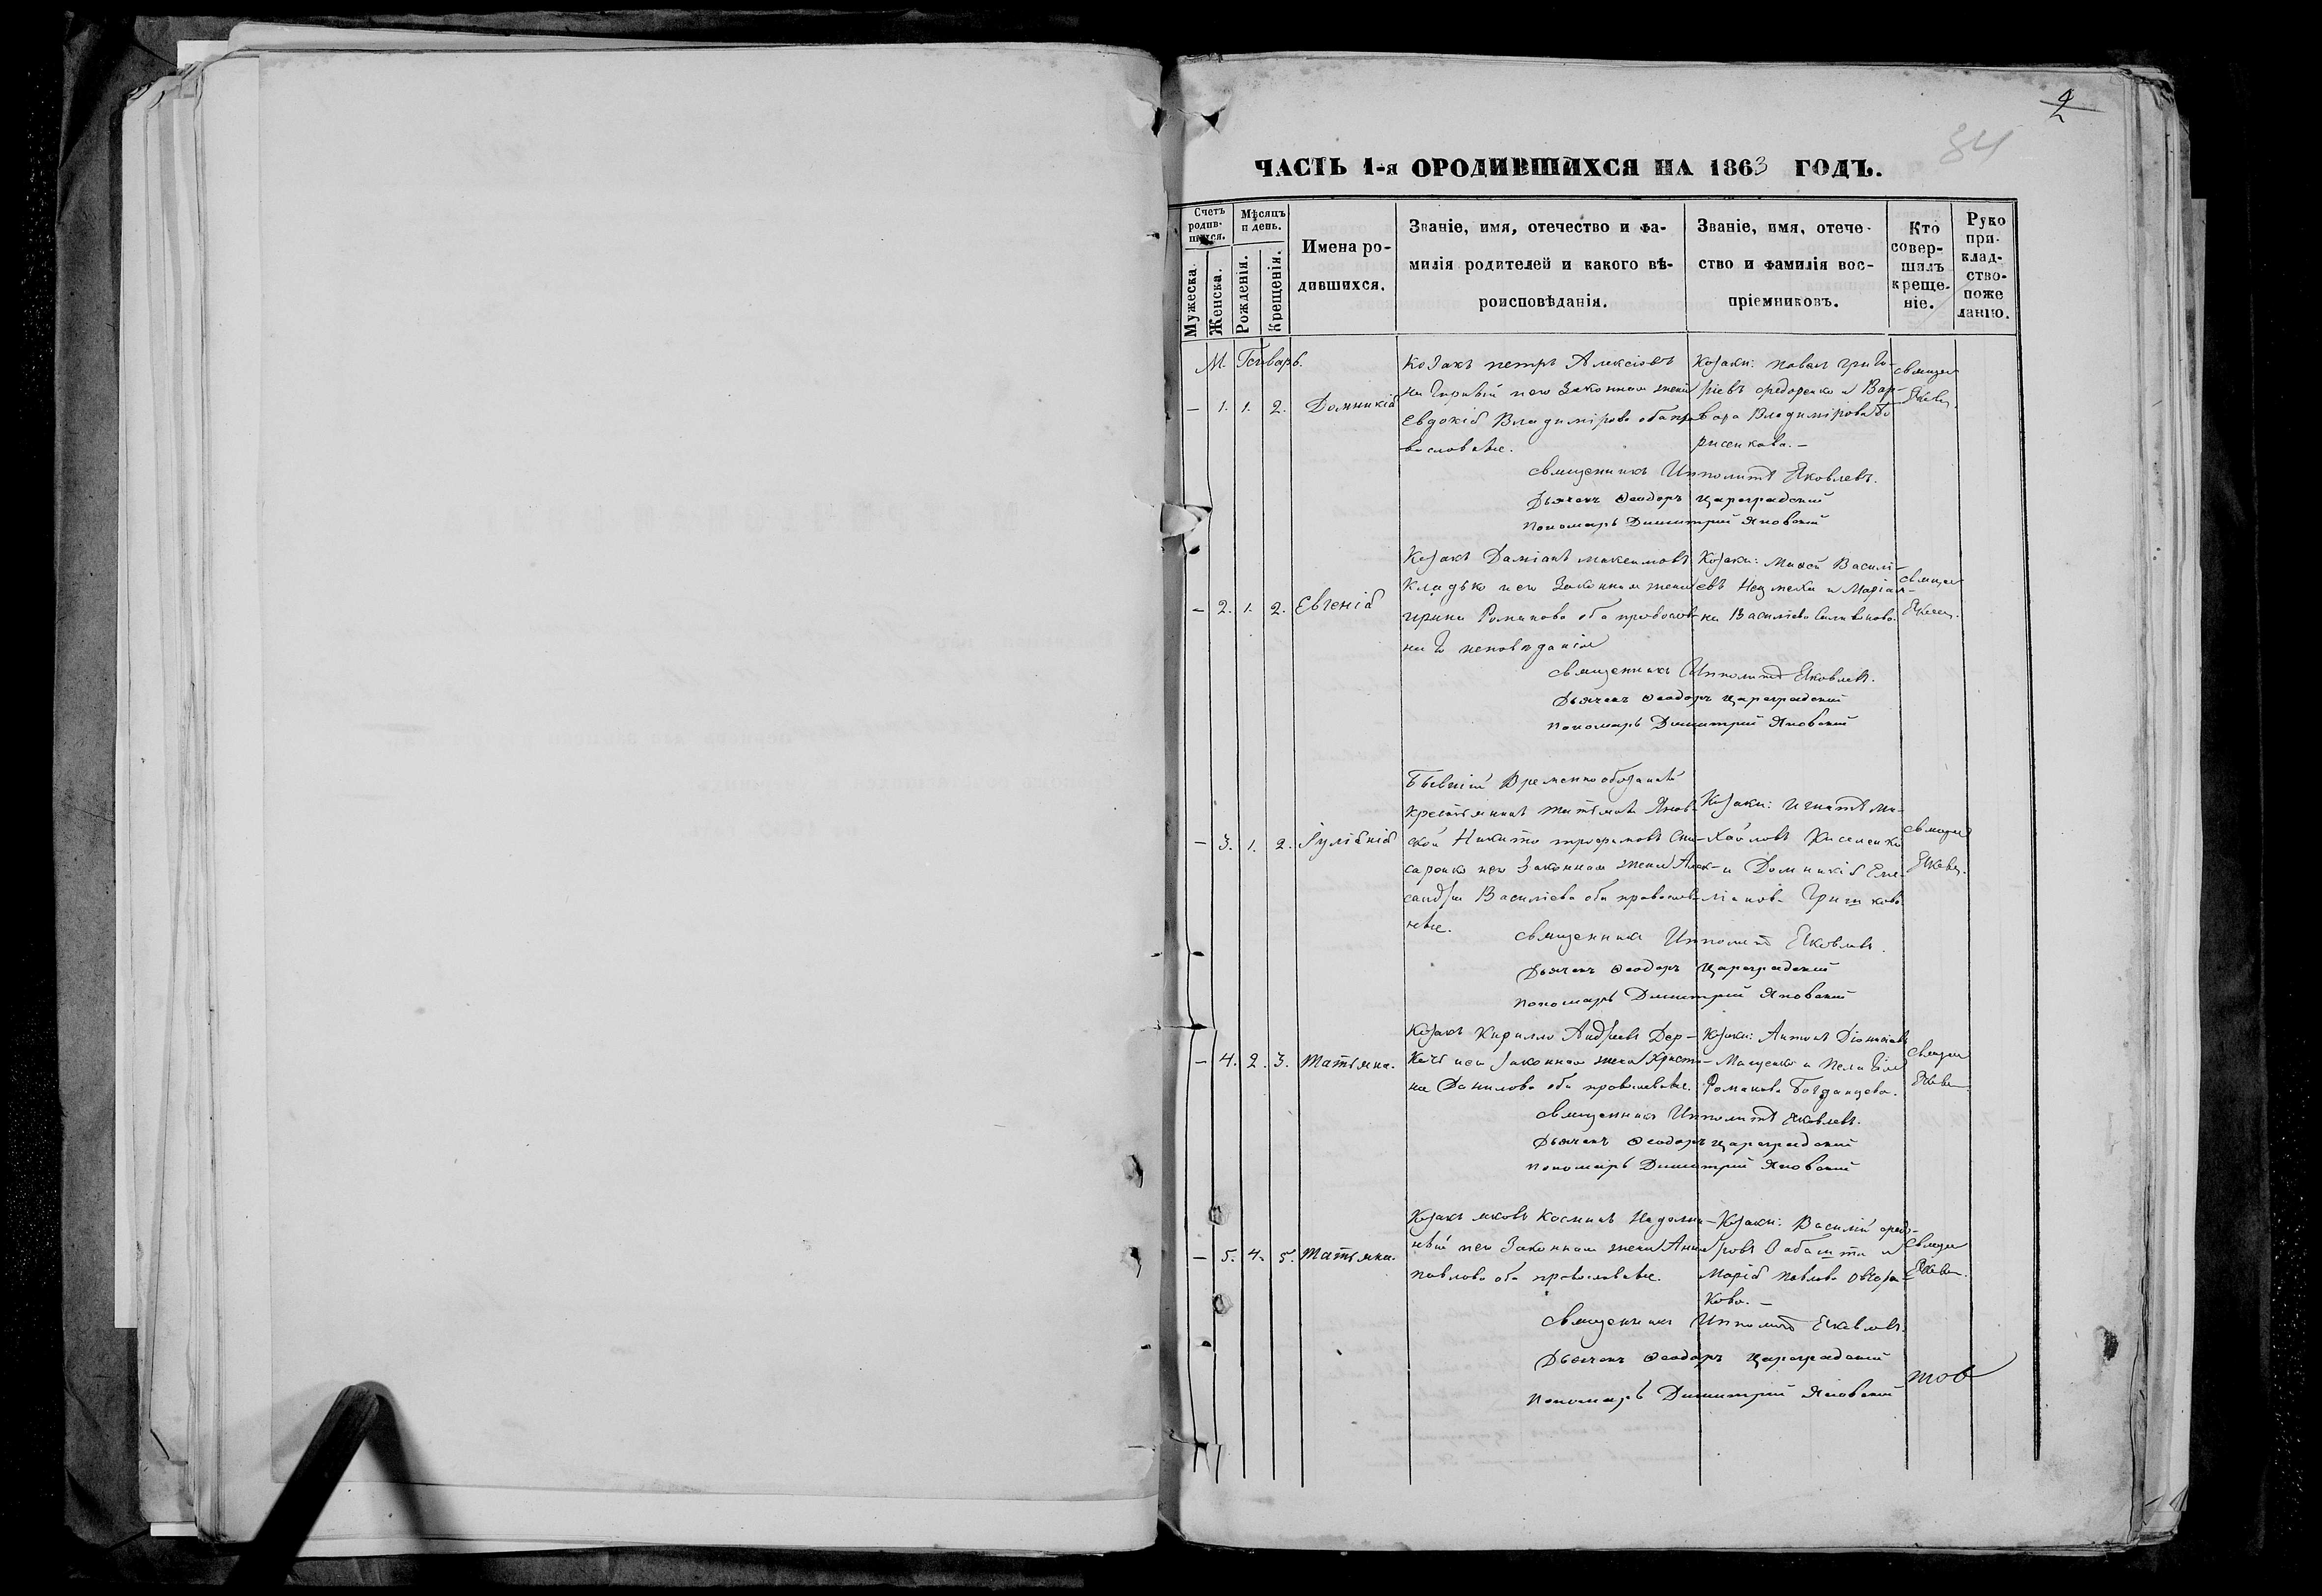 2
84
ЧАСТЬ 1-я ОРОДИВШИХСЯ НА 1863 ГОДЪ.
Счетъ родив-шихся.
Мѣсяцъ и день.
Мужеска.
Женска.
Рожденія.
Крещенія.
Имена ро-
дившихся.
Званіе, имя, отчество и фа-
милія родителей и какого вѣ-
роисповѣданія.
Званіе, имя, отече-
ство и фамилія вос-
пріемниковъ.
Кто
совер-
шилъ
креще-
ніе.
Руко
при-
клад-
ство-
поже
ланію.
М. Генварь.
— 1. 1. 2. Домникія
Козакъ петръ Алексіовъ
его Законная жена
Евдокія Владимірова оба пра-
вославные.
Козаки: павелъ григо-
ріевъ федоренко и Вар-
вара Владимірова Бо
рисенкова. —
священникъ Ипполитъ Яковлевъ.
Дьячекъ Ѳеодоръ Цареградский
пономарь Димитрий Яновский
— 2. 1. 2. Евгенія
Козакъ Даміанъ максимовъ
Кладько и его Законная жена
ирина Романова оба православ-
наго исповѣданія
Козаки: Василі-
евъ и Маріан-
на Василіева
священникъ Ипполитъ Яковлевъ.
Дьячекъ Ѳеодоръ Цареградский
пономарь Димитрий Яновский
— 3. 1. 2. Іуліанія
Бывшій Временно обязаной
крестьянинъ Янов-
ской Никита трофимовъ Сли-
саренко и его Законная жена Алек-
сандра Василіева оба православ-
ные.
Козаки: игнатъ Ми-
хайловъ Киселенко
и Домникія Еме-
ліанова Гришкова
священникъ Ипполитъ Яковлевъ.
Дьячекъ Ѳеодоръ Цареградский
пономарь Димитрий Яновский
— 4. 2. 3. Татьяна.
Козакъ Кирилло Андреевъ Дер-
качъ и его законная жена Христи-
на Данилова оба православные.
Козаки: Антонъ Діонисіевъ
Мащенко и Пелагія
Романова Богданцева.
священникъ Ипполитъ Яковлевъ.
Дьячекъ Ѳеодоръ Цареградский
пономарь Димитрий Яновский
— 5. 4. 5. Татьяна.
Козакъ яковъ Космин
и его Законная жена Анна
павлова оба православные.
Козаки: Василій федо-
ровъ и
Марія павлова
кова. —
священникъ Ипполитъ Яковлевъ.
Дьячекъ Ѳеодоръ Цареградский
пономарь Димитрий Яновский